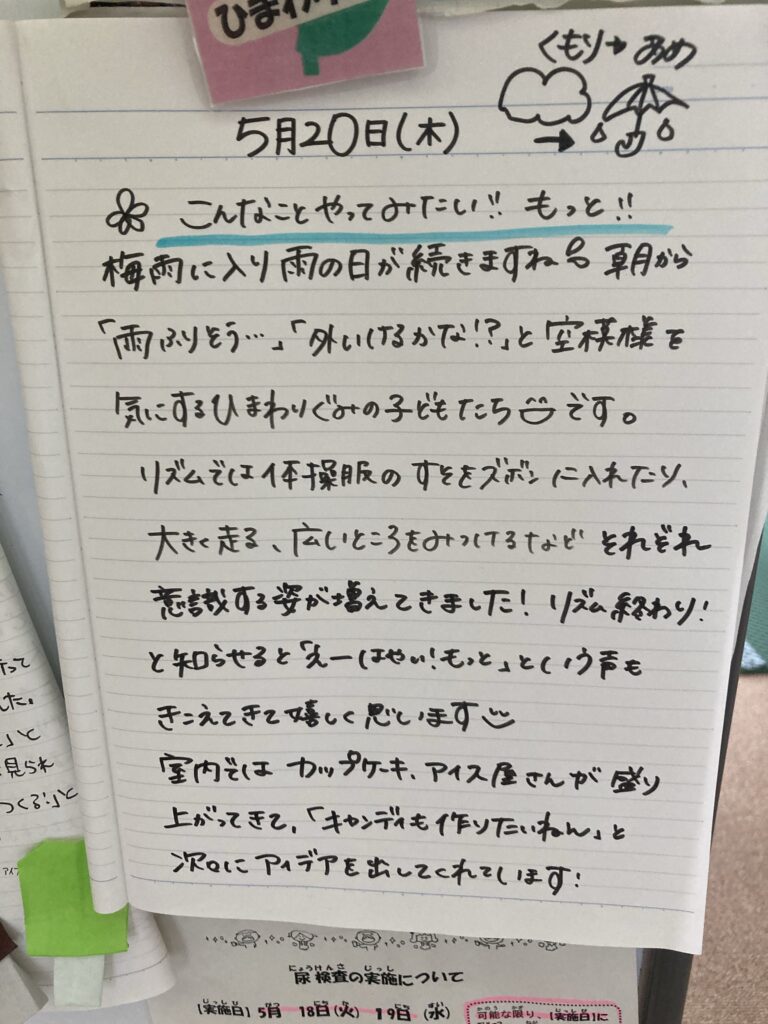 ひまわり
くもり→あめ
5月20日(木)
こんなことやってみたい!! もっと!!
梅雨に入り雨の日が続きますね 朝から
「雨ふりそう…」「外いけるかな!?」と空模様を
気にするひまわりぐみの子どもたちです。
リズムでは体操服のすそをズボンに入れたり、
大きく走る、広いところをみつけるなど それぞれ
意識する姿が増えてきました! リズム終わり!
と知らせると「えーはやい!もっと」という声も
きこえてきて嬉しく思います
室内では カップケーキ、アイス屋さんが盛り
上がってきて、「キャンディも作りたいねん」と
次々にアイデアを出してくれています!
って
した。
」と
見られ
つくる!」と
尿検査の実施について
にょうけんさ じっし
【実施日】5月 18日(火) 19日(水)
可能な限り、【実施日】に